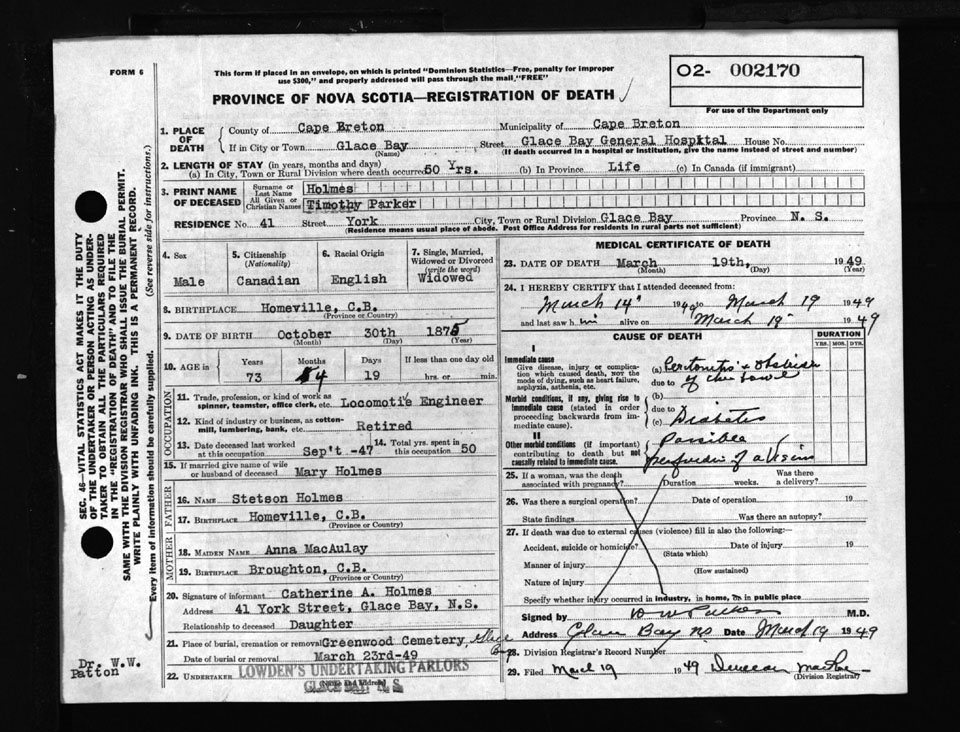 FORM 6
This form if placed in an envelope, on which is printed "Dominion Statistics—Free, penalty for improper
use $300," and properly addressed will pass through the mail, "FREE"
PROVINCE OF NOVA SCOTIA—REGISTRATION OF DEATH
02- 002170
For use of the Department only
1. PLACE OF DEATH
County of Cape Breton Municipality of Cape Breton
If in City or Town Glace Bay Street Glace Bay General Hospital House No.
(Name) (If death occurred in a hospital or institution, give the name instead of street and number)
2. LENGTH OF STAY (in years, months and days)
(a) In City, Town or Rural Division where death occurred 50 Yrs. (b) In Province Life (c) In Canada (if immigrant)
3. PRINT NAME OF DECEASED
Surname or Last Name Holmes
All Given or Christian Names Timothy Parker
RESIDENCE No. 41 Street York City, Town or Rural Division Glace Bay Province N. S.
(Residence means usual place of abode. Post Office Address for residents in rural parts not sufficient)
4. Sex
Male
5. Citizenship
(Nationality)
Canadian
6. Racial Origin
English
7. Single, Married,
Widowed or Divorced
(write the word)
Widowed
8. BIRTHPLACE Homeville, C.B.
(Province or Country)
9. DATE OF BIRTH October 30th 1875
(Month) (Day) (Year)
10. AGE in
Years Months Days If less than one day old
73 4 19 hrs. or min.
OCCUPATION
11. Trade, profession or kind of work as
spinner, teamster, office clerk, etc. Locomotive Engineer
12. Kind of industry or business, as cotton-
mill, lumbering, bank, etc. Retired
13. Date deceased last worked
at this occupation Sep't -47
14. Total yrs. spent in
this occupation 50
15. If married give name of wife
or husband of deceased Mary Holmes
FATHER
16. NAME Stetson Holmes
17. BIRTHPLACE Homeville, C.B.
(Province or Country)
MOTHER
18. MAIDEN NAME Anna MacAulay
19. BIRTHPLACE Broughton, C.B.
(Province or Country)
20. Signature of informant Catherine A. Holmes
Address 41 York Street, Glace Bay, N.S.
Relationship to deceased Daughter
21. Place of burial, cremation or removal Greenwood Cemetery, Glace Bay
Date of burial or removal March 23rd-49
22. UNDERTAKER LOWDEN'S UNDERTAKING PARLORS
(Name and Address)
GLACE BAY, N. S.
MEDICAL CERTIFICATE OF DEATH
23. DATE OF DEATH March 19th, 1949
(Month) (Day) (Year)
24. I HEREBY CERTIFY that I attended deceased from:
March 14" 1949 to March 19 1949
and last saw him alive on March 19 1949
CAUSE OF DEATH
DURATION
YRS. MOS. DYS.
I
Immediate cause
Give disease, injury or complica-
tion which caused death, not the
mode of dying, such as heart failure,
asphyxia, asthenia, etc.
(a) Peritonitis +
due to of the bowel
Morbid conditions, if any, giving rise to
immediate cause (stated in order
proceeding backwards from im-
mediate cause).
(b)
due to
(c) Diabetes
II
Other morbid conditions (if important)
contributing to death but not
causally related to immediate cause.
Possible
perforation of a
25. If a woman, was the death
associated with pregnancy? Duration weeks. Was there
a delivery?
26. Was there a surgical operation? Date of operation 19
State findings Was there an autopsy?
27. If death was due to external causes (violence) fill in also the following:
Accident, suicide or homicide? Date of injury 19
(State which)
Manner of injury
(How sustained)
Nature of injury
Specify whether injury occurred in industry, in home, or in public place
Signed by M.D.
Address Glace Bay NS Date March 19 1949
28. Division Registrar's Record Number
29. Filed March 19 1949 Duncan
(Division Registrar)
SEC. 46—VITAL STATISTICS ACT MAKES IT THE DUTY
OF THE UNDERTAKER OR PERSON ACTING AS UNDER-
TAKER TO OBTAIN ALL THE PARTICULARS REQUIRED
IN THE "REGISTRATION OF DEATH" AND TO FILE THE
SAME WITH THE DIVISION REGISTRAR WHO SHALL ISSUE THE BURIAL PERMIT.
WRITE PLAINLY WITH UNFADING INK. THIS IS A PERMANENT RECORD.
Every item of information should be carefully supplied. (See reverse side for instructions.)
Dr. W.W.
Patton